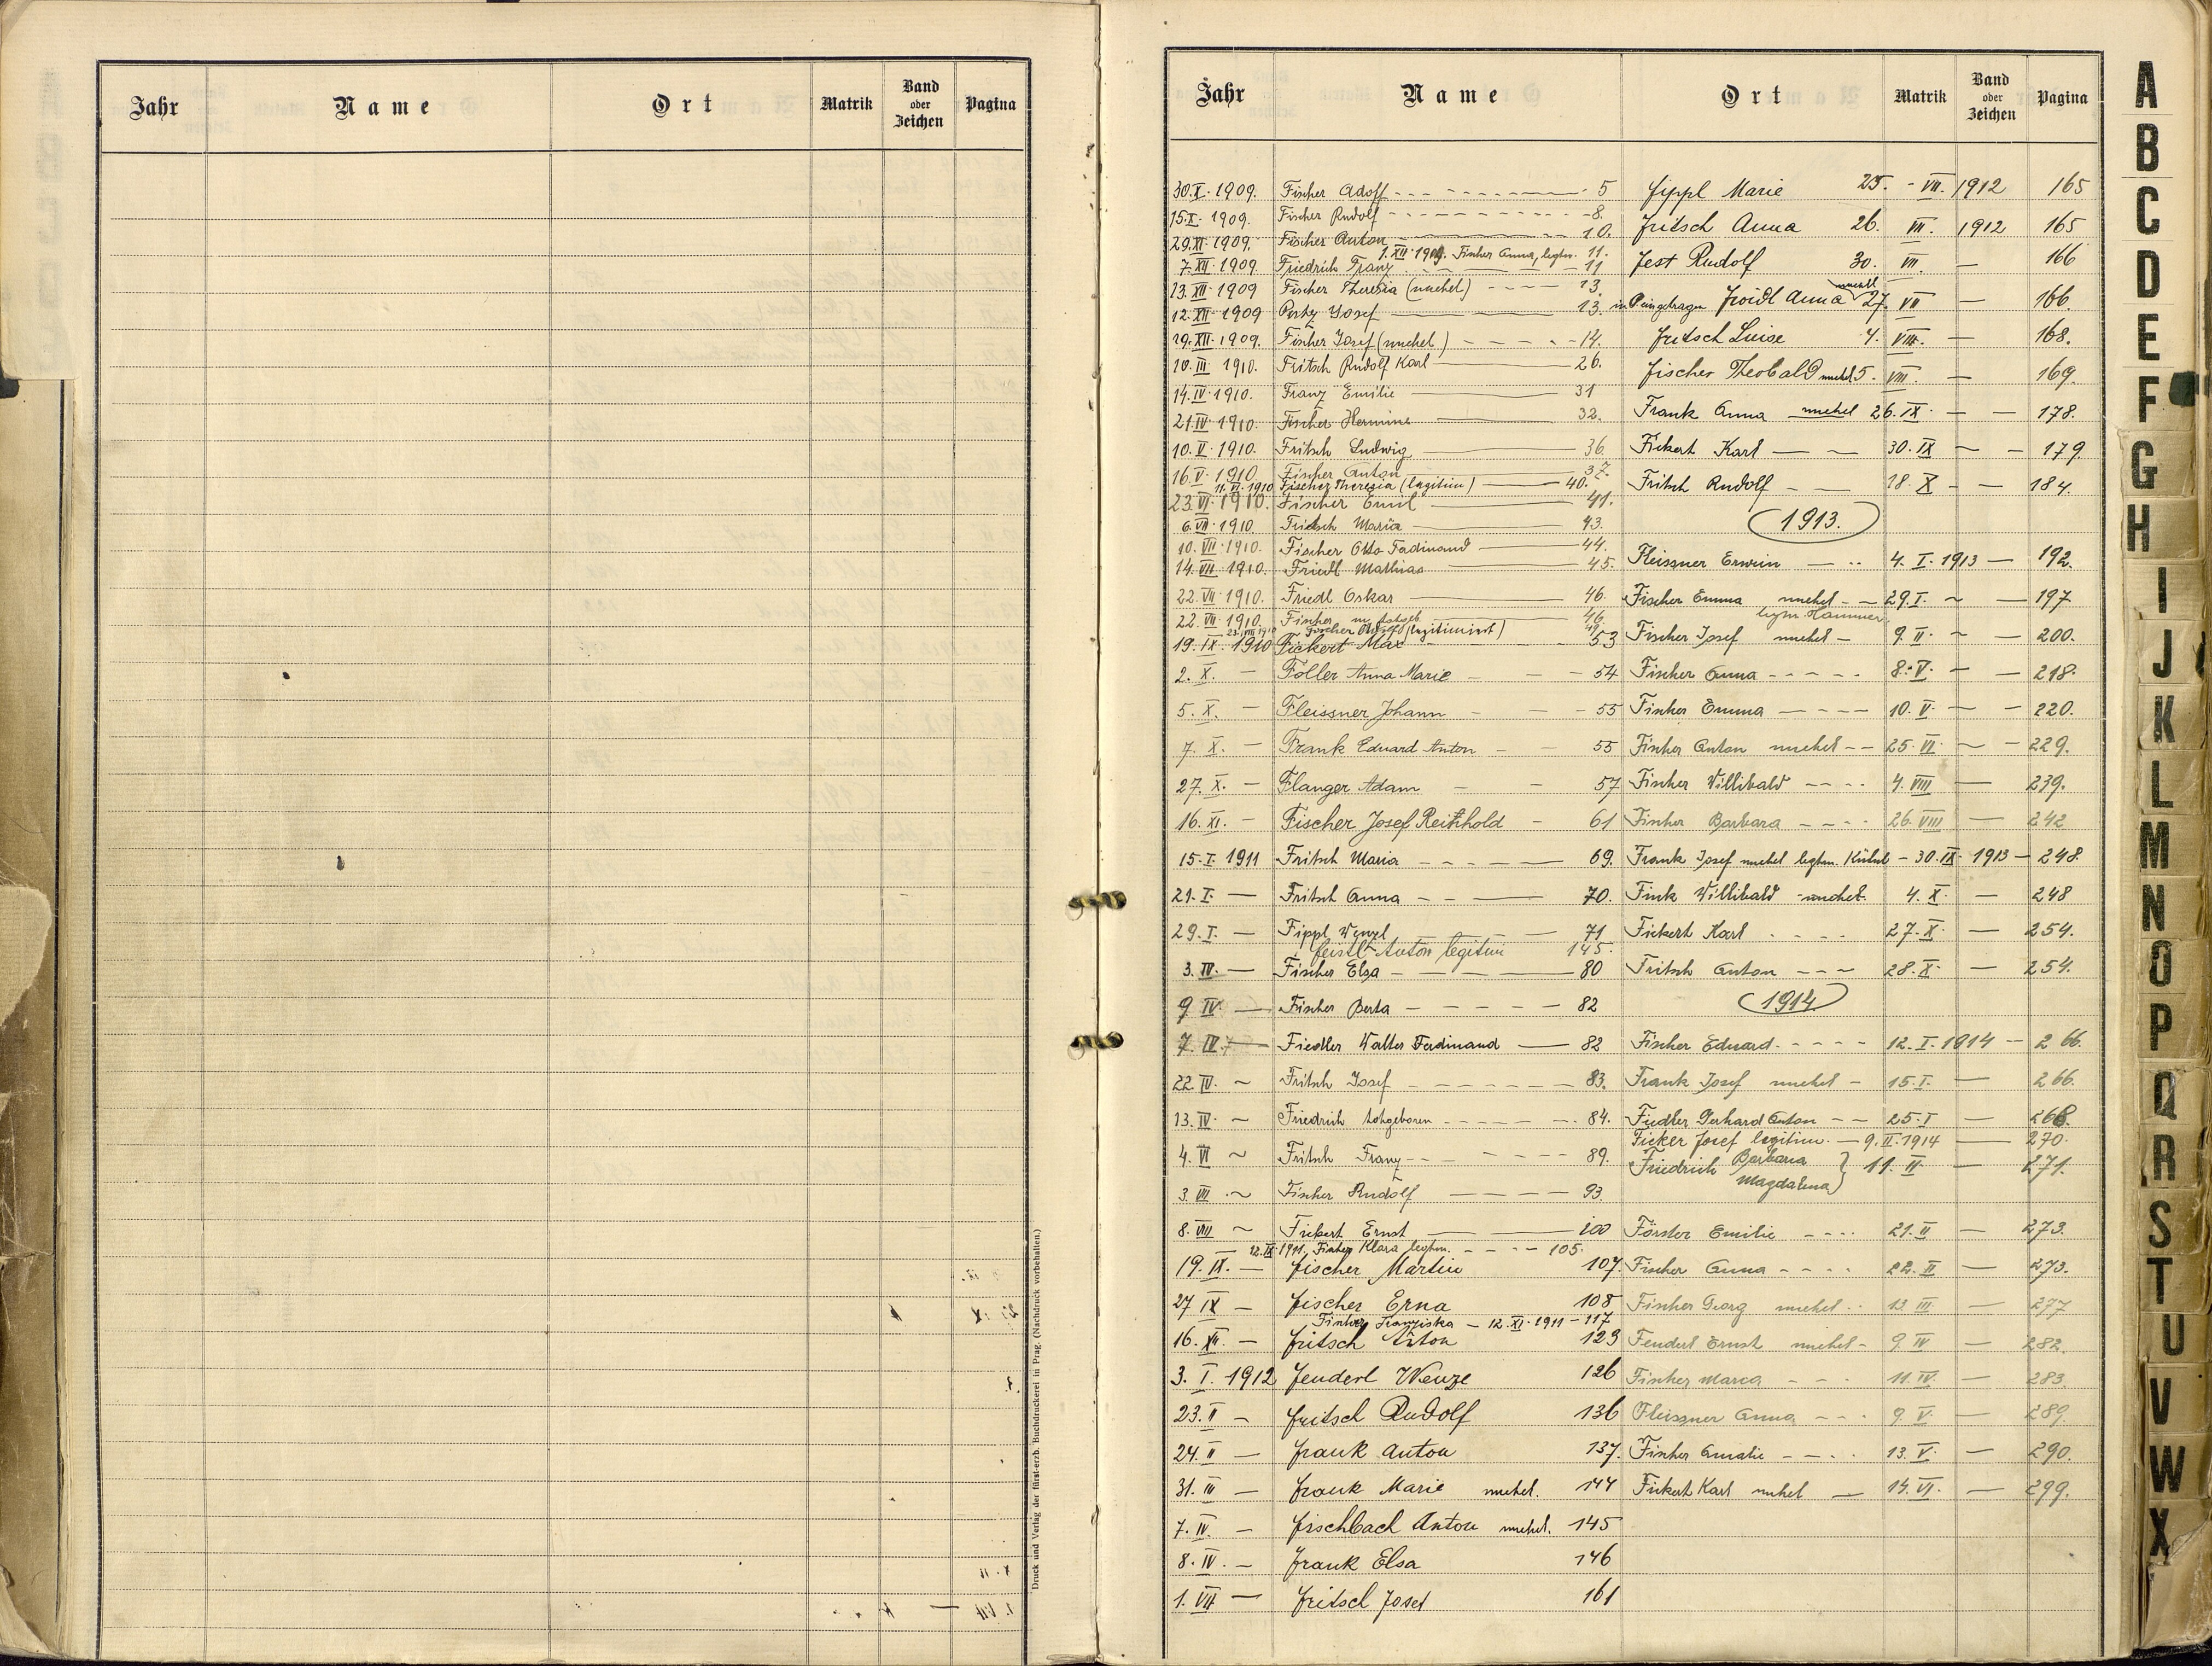 Jahr Name Ort Matrik Band oder Zeichen Pagina
Druck und Verlag der fürst-erzb. Buchdruckerei in Prag. (Nachdruck vorbehalten.)
Jahr Name Ort Matrik Band oder Zeichen Pagina
30.X. 1909. Fischer Adolf 5
15.X. 1909. Fischer Rudolf 8.
29.XI. 1909. Fischer Anton 10.
1.XII. 1909. Fischer Anna, legtm. 11.
7.XII. 1909. Friedrich Franz 11
23.XII. 1909 Fischer Theresia (unehel) 13.
12.XII. 1909 Josef 13.
29.XII. 1909. Fischer Josef (unehel) 14.
20.III 1910. Fritsch Rudolf Karl 26.
14.IV. 1910. Franz Emilie 31
21.IV. 1910. Fischer Hermine 32.
10.V. 1910. Fritsch Ludwig 36.
16.V. 1910 Fischer Anton 37.
11.VI. 1910 Fischer Theresia (legitim) 40.
23.VI. 1910. Fischer Emil 41.
6.VII. 1910. Fritsch Maria 43.
10.VII. 1910. Fischer Otto Ferdinand 44.
14.VII. 1910. Friedl Mathias 45.
22.VII. 1910. Friedl Oskar 46.
22.VII. 1910. Fischer 46.
23.VIII 1910 Fischer Adolf (legitimiert) 49
19.IX. 1910 Fickert Max 53
2. X. — Foller Anna Marie 54
5. X. — Fleissner Johann 55
7. X. — Frank Eduard Anton 55
27. X. — Flanger Adam 57
16. XI. — Fischer Josef Reinhold 61
15.I. 1911 Fritsch Maria 69.
21.I. — Fritsch Anna 70.
29.I. — Fippl Wenzl 71
Feistl Anton legitim 145.
3. IV. — Fischer Elsa 80
9 IV. — Fischer Berta 82
7. IV. — Fiedler Walter Ferdinand 82
22 IV. ~ Fritsch Josef 83.
13. IV. ~ Friedrich totgeboren 84.
4. VI ~ Fritsch Franz 89.
3. VII. ~ Fischer Rudolf 93.
8. VIII ~ Fickert Ernst 100
12.IX 1911, Fischer Klara legtm. 105.
19. IX. — Fischer Martin 107.
27 IX — Fischer Erna 108
Fischer Franziska — 12.XI. 1911 — 117
16. XII. — Fritsch Anton 123
3. I. 1912 Fenderl Wenze 126
23. II — Fritsch Rudolf 136
24. II — Frank Anton 137.
31. III — Frank Marie unehel. 144
7. IV. — Fischbach Anton unehel. 145
8. IV. — Frank Elsa 146
1. VII — Fritsch Josef 161
Fippl Marie 25. VII. 1912 165
Fritsch Anna 26. VII. 1912 165
Fest Rudolf 30. VII. — 166
eingetragen Froidl Anna unehl 27. VII — 166.
Fritsch Luise 4. VIII. — 168.
Fischer Theobald unehel 5. VIII. — 169.
Frank Anna unehel 26. IX. — 178.
Fickert Karl 30. IX — 179.
Fritsch Rudolf 18. X — 184.
1913.
Fleissner Erwin 4. I. 1913 — 192.
Fischer Emma unehel 29. I. ~ — 197
legtm. Hammer
Fischer Josef unehel 9. II. ~ — 200.
Fischer Anna 8. V. — 218.
Fischer Emma 10. V. — 220.
Fischer Anton unehel 25. VI. ~ — 229.
Fischer Willibald 4. VIII — 239.
Fischer Barbara 26. VIII — 242
Frank Josef unehel legtm. Kühnl — 30. IX. 1913 — 248.
Fink Willibald unehel. 4. X. — 248
Fickert Karl 27. X. — 254.
Fritsch Anton 28. X. — 254.
1914
Fischer Eduard 12. I. 1914 — 266.
Frank Josef unehel 15. I. — 266.
Fiedler Gerhard Anton 25. I — 268.
Ficker Josef legitim. — 9. II. 1914 — 270.
Friedrich Barbara Magdalena } 11. II — 271.
Förster Emilie 21. II — 273.
Fischer Anna 22. II — 273.
Fischer Georg unehel 13 III. — 277
Fenderl Ernst unehel 9. IV — 282.
Fischer Maria 11. IV. — 283.
Fleissner Anna 9. V. — 289.
Fischer Amalie 13. V. — 290.
Fickert Karl unehel 14. VI. — 299.
A
B
C
D
E
F
G
H
I
J
K
L
M
N
O
P
Q
R
S
T
U
V
W
X